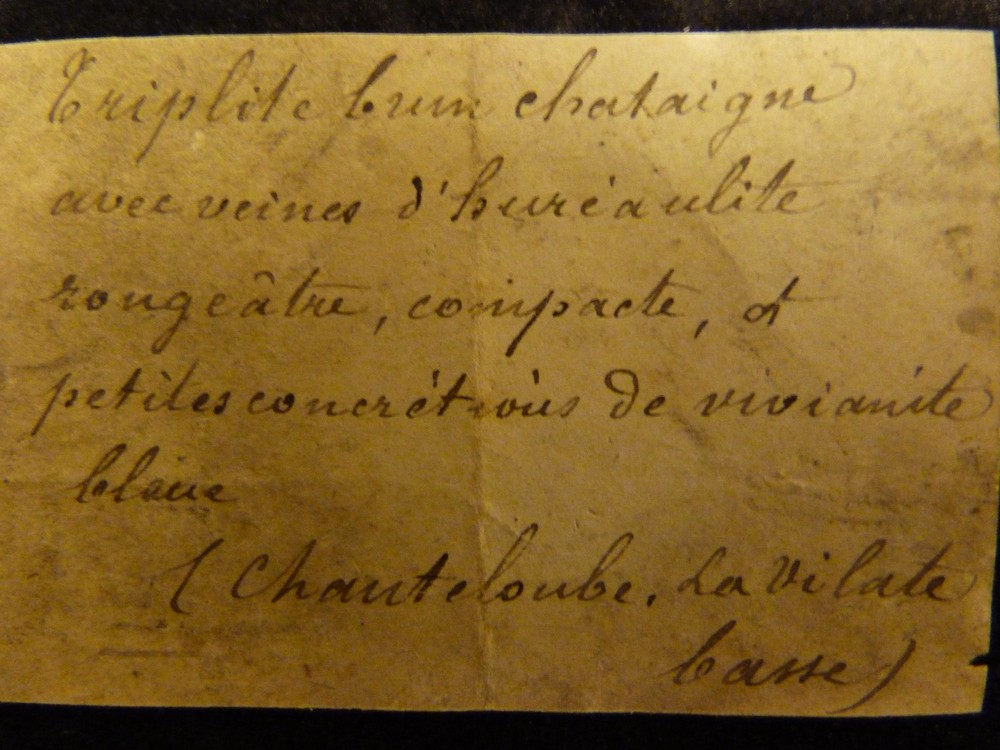 Triplite brun chataigne
avec veines d'huréaulite
rougeâtre, compacte, et
petites concrétions de vivianite
bleue
(Chanteloube. La Vilate
basse)